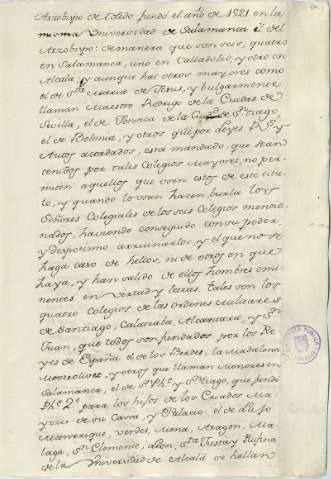 Arzobpo de Toledo fundó el año de 1521 en la
misma Universidad de Salamanca el del
Arzobpo: de manera que son seis, quatro
en Salamanca, uno en Valladolid, y otro en
Alcalá, y aunque hai otros mayores como
el de Sta Maria de Jesus, y bulgarmente
llaman Maestro Rodrigo de la Ciudad de
Sevilla, el de Fonseca de la Ciudad de Stiago,
el de Bolonia, y otros qe por Leyes Rs y
Autos acordados, está mandado, que sean
tenidos por tales Colegios Mayores, no per-
miten aquellos que usen estos de este titu-
lo, y quando lo usan hacen burla los
Señores Colegiales de los seis Colegios mencio-
nados, haviendo conseguido con su poder
y despotismo arruinarlos, y el que no se
haga caso de hellos, ni de otros en que
haya, y han salido de ellos hombres emi-
nentes en virtud y letras. Tales son los
quatro Colegios de las ordenes Militares
de Santiago, Calatraba, Alcantara, y Sn
Juan, que todos son fundados por los Re-
yes de España el de los Berdes, la Madalena
Monteolivet, y otros que llaman Menores en
Salamanca, el de Sn Phe y Stiago, que fundó
Phe 2º para los hijos de los Criados Ma-
yores de su Casa, y Palacio: el de
Manrrique, Verdes, Mena, Aragon, Ma-
laga, Sn Clemente, Leon, Sta Justa y Rufina
de la Universidad de Alcalá se hallan